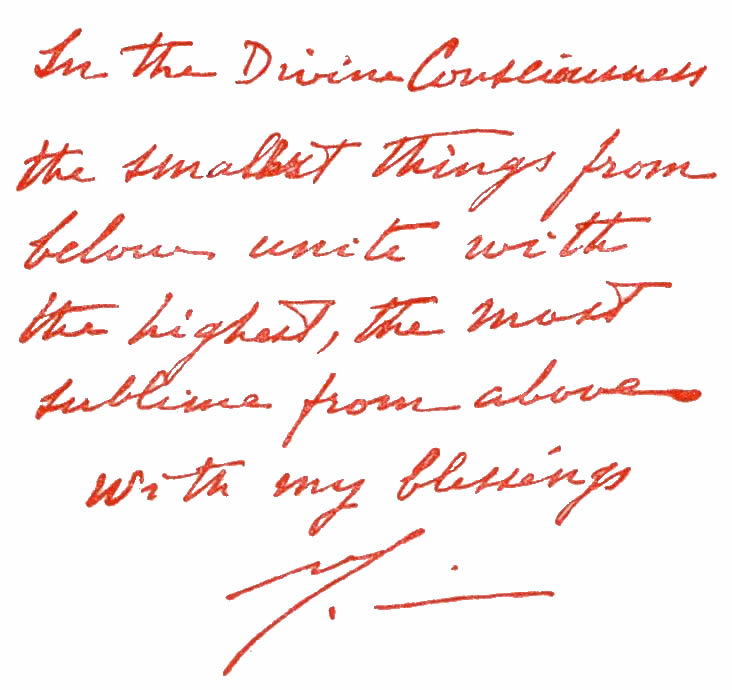 In the Divine Consciousness
the smallest things from
below unite with
the highest, the most
sublime from above
with my blessings